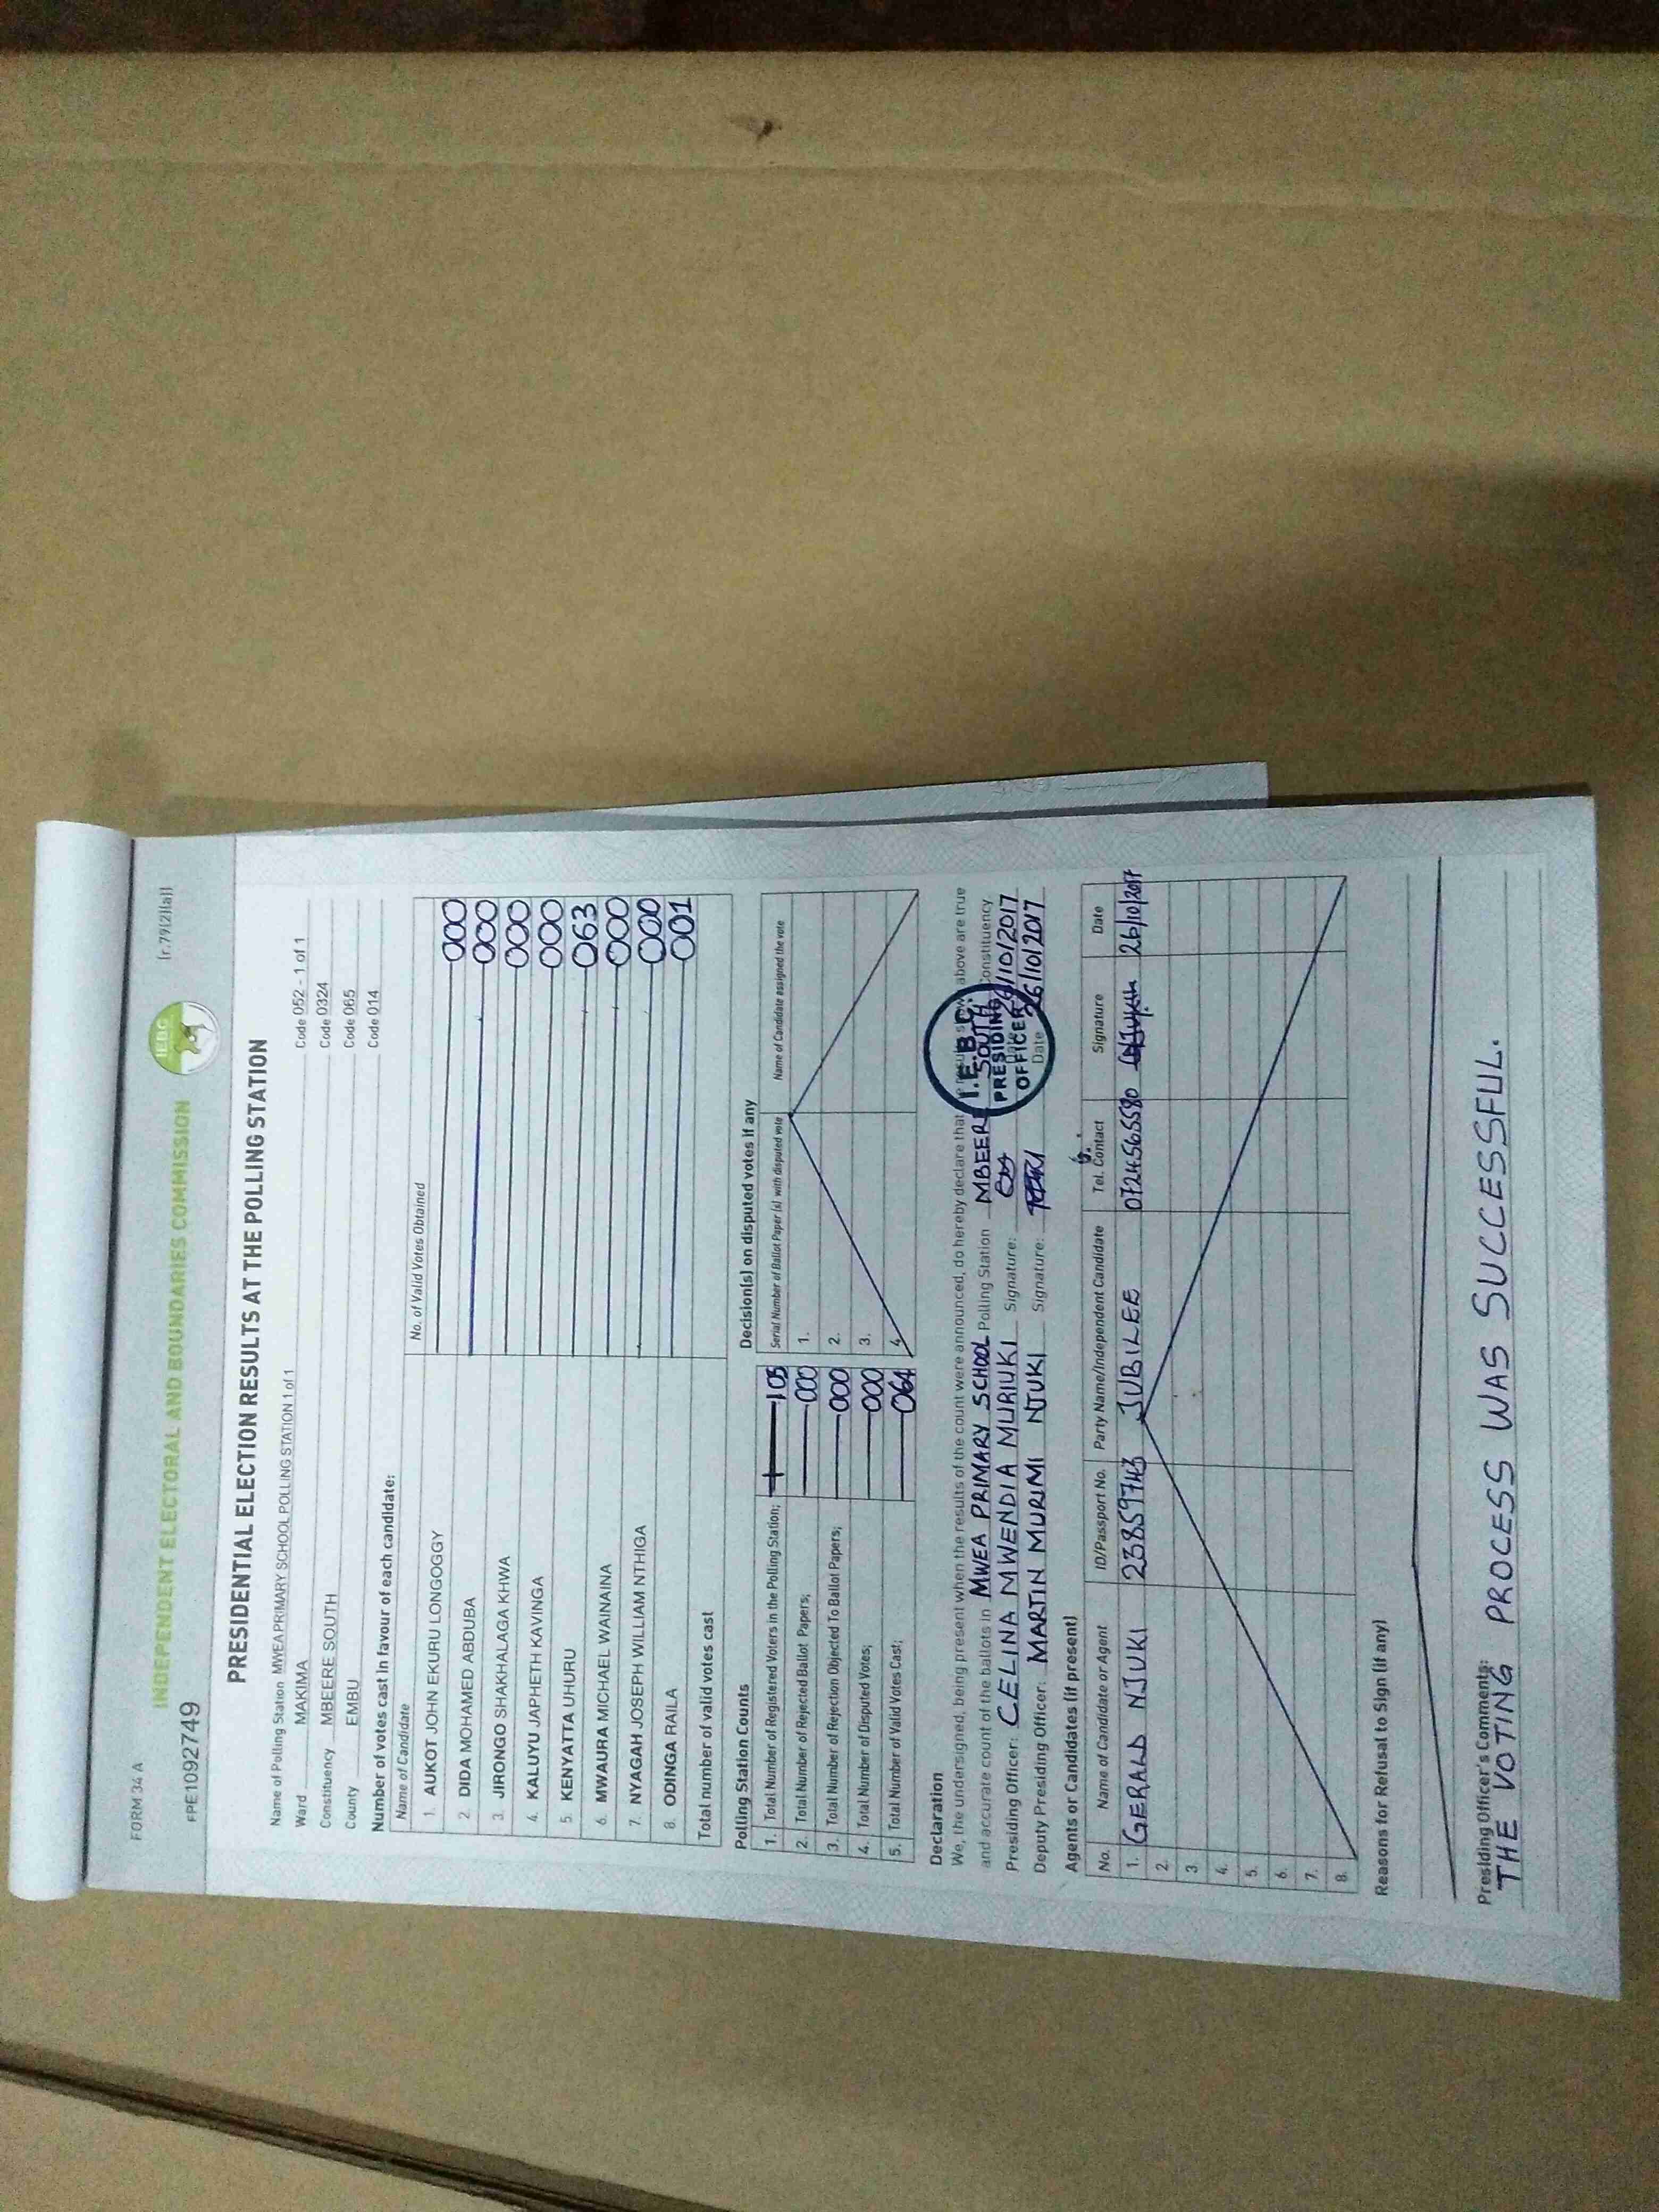 FORM 34 A
[r.79(2)(a)]
INDEPENDENT ELECTORAL AND BOUNDARIES COMMISSION
IEBC
FPE1092749
PRESIDENTIAL ELECTION RESULTS AT THE POLLING STATION
Name of Polling Station MWEA PRIMARY SCHOOL POLLING STATION 1 of 1 Code 052 - 1 of 1
Ward MAKIMA Code 0324
Constituency MBEERE SOUTH Code 065
County EMBU Code 014
Number of votes cast in favour of each candidate:
Name of Candidate No. of Valid Votes Obtained
1. AUKOT JOHN EKURU LONGOGGY 000
2. DIDA MOHAMED ABDUBA 000
3. JIRONGO SHAKHALAGA KHWA 000
4. KALUYU JAPHETH KAVINGA 000
5. KENYATTA UHURU 063
6. MWAURA MICHAEL WAINAINA 000
7. NYAGAH JOSEPH WILLIAM NTHIGA 000
8. ODINGA RAILA 001
Total number of valid votes cast
Polling Station Counts
1. Total Number of Registered Voters in the Polling Station; 105
2. Total Number of Rejected Ballot Papers; 000
3. Total Number of Rejection Objected To Ballot Papers; 000
4. Total Number of Disputed Votes; 000
5. Total Number of Valid Votes Cast; 064
Decision(s) on disputed votes if any
Serial Number of Ballot Paper (s) with disputed vote Name of Candidate assigned the vote
1.
2.
3.
4.
Declaration
We, the undersigned, being present when the results of the count were announced, do hereby declare that above are true
and accurate count of the ballots in MWEA PRIMARY SCHOOL Polling Station MBEERE SOUTH Constituency.
Presiding Officer: CELINA MWENDIA MURIUKI Signature: Date 26/10/2017
Deputy Presiding Officer: MARTIN MURIMI NJUKI Signature: Date 26/10/2017
I.E.B.C.
PRESIDING
OFFICER
Agents or Candidates (if present)
No. Name of Candidate or Agent ID/Passport No. Party Name/Independent Candidate Tel. Contact Signature Date
1. GERALD NJUKI 23859743 JUBILEE 0724565580 26/10/2017
2.
3.
4.
5.
6.
7.
8.
Reasons for Refusal to Sign (if any)
Presiding Officer's Comments:
THE VOTING PROCESS WAS SUCCESSFUL.